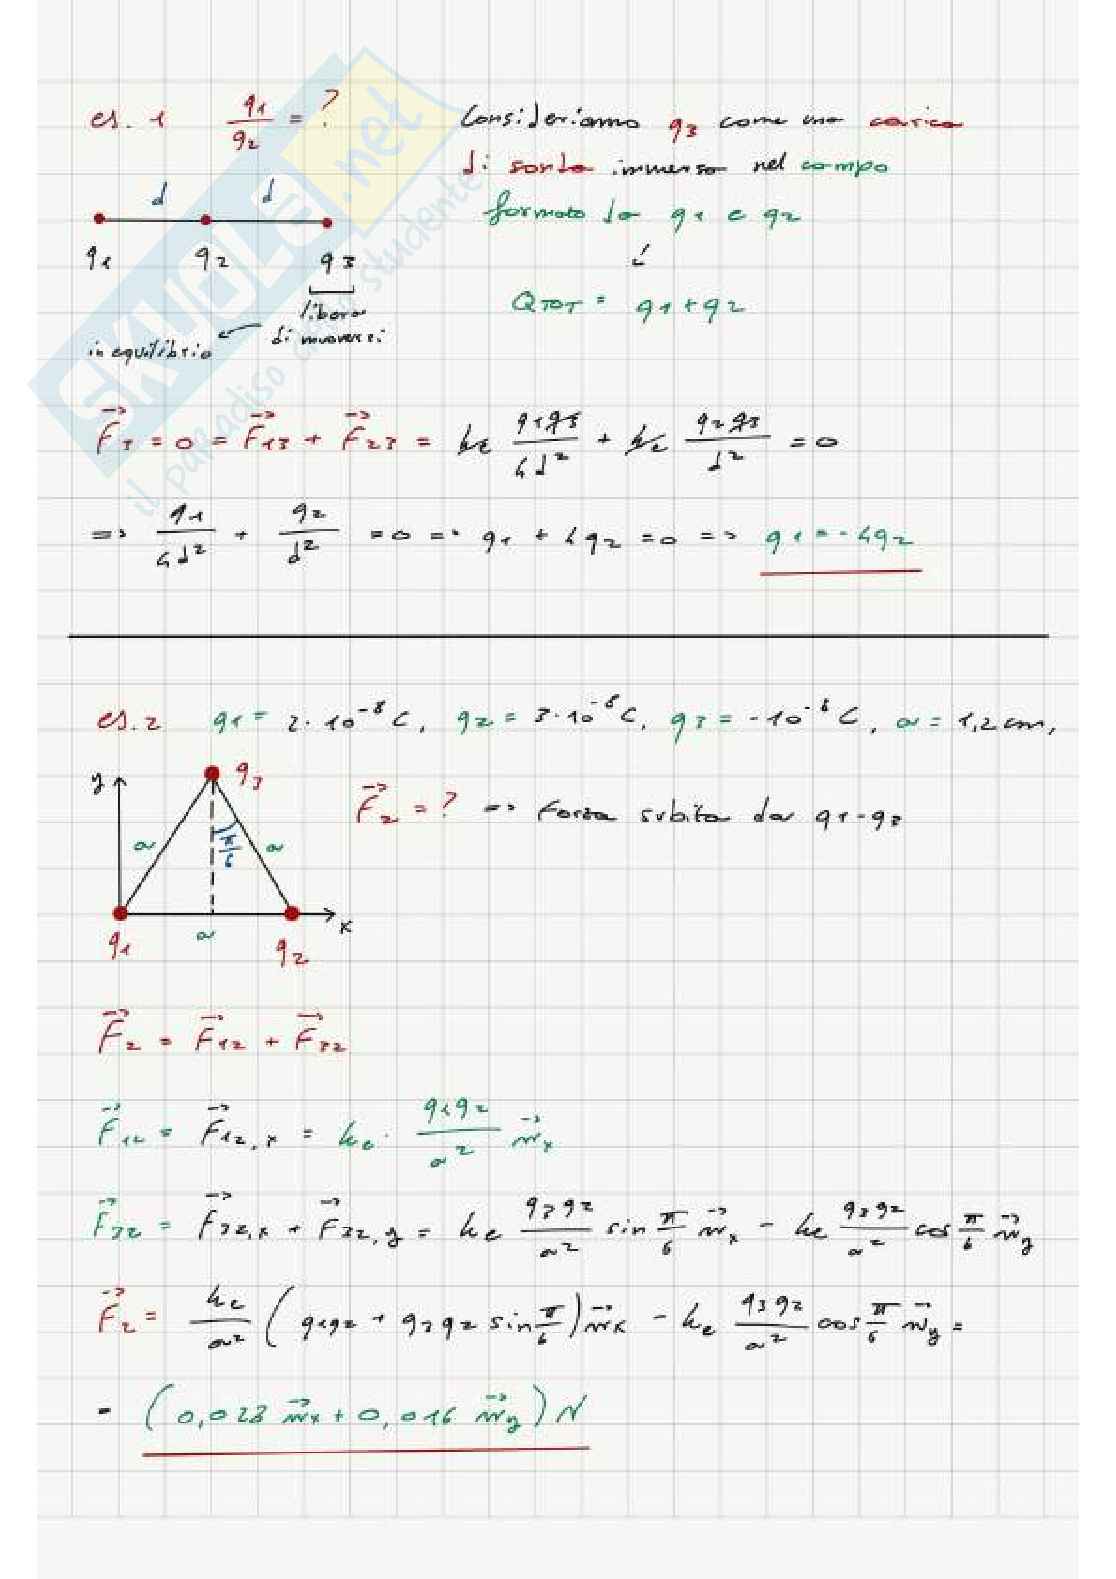 es. 1 q1/q2 = ? Consideriamo q3 come una carica
di sonda immersa nel campo
formato da q1 e q2
d d
q1 q2 q3
QTOT = q1+q2
libera
di muoversi
in equilibrio
F⃗3 = 0 = F⃗13 + F⃗23 = ke q1q3/4d² + ke q2q3/d² = 0
=> q1/4d² + q2/d² = 0 => q1 + 4q2 = 0 => q1 = -4q2
es. 2 q1 = 2·10⁻⁸ C, q2 = 3·10⁻⁸ C, q3 = -10⁻⁸ C, a = 1,2 cm,
y q3
F⃗2 = ? => Forza subita da q1-q3
π/6
a a
x
q1 a q2
F⃗2 = F⃗12 + F⃗32
F⃗12 = F⃗12,x = ke · q1q2/a² u⃗x
F⃗32 = F⃗32,x + F⃗32,y = ke q3q2/a² sin π/6 u⃗x - ke q3q2/a² cos π/6 u⃗y
F⃗2 = ke/a² (q1q2 + q3q2 sin π/6) u⃗x - ke q3q2/a² cos π/6 u⃗y =
= (0,028 u⃗x + 0,016 u⃗y) N
SKUOLA.net
il paradiso dello studente